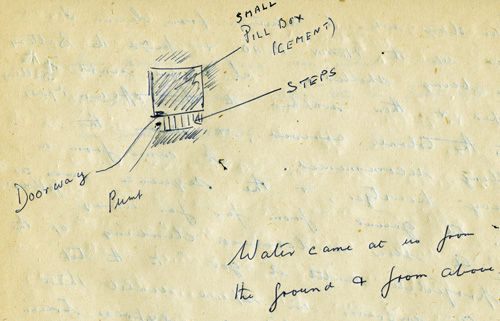 SMALL
PILL BOX
(CEMENT)
STEPS
Doorway
Pump
Water came at us from
the ground & from above